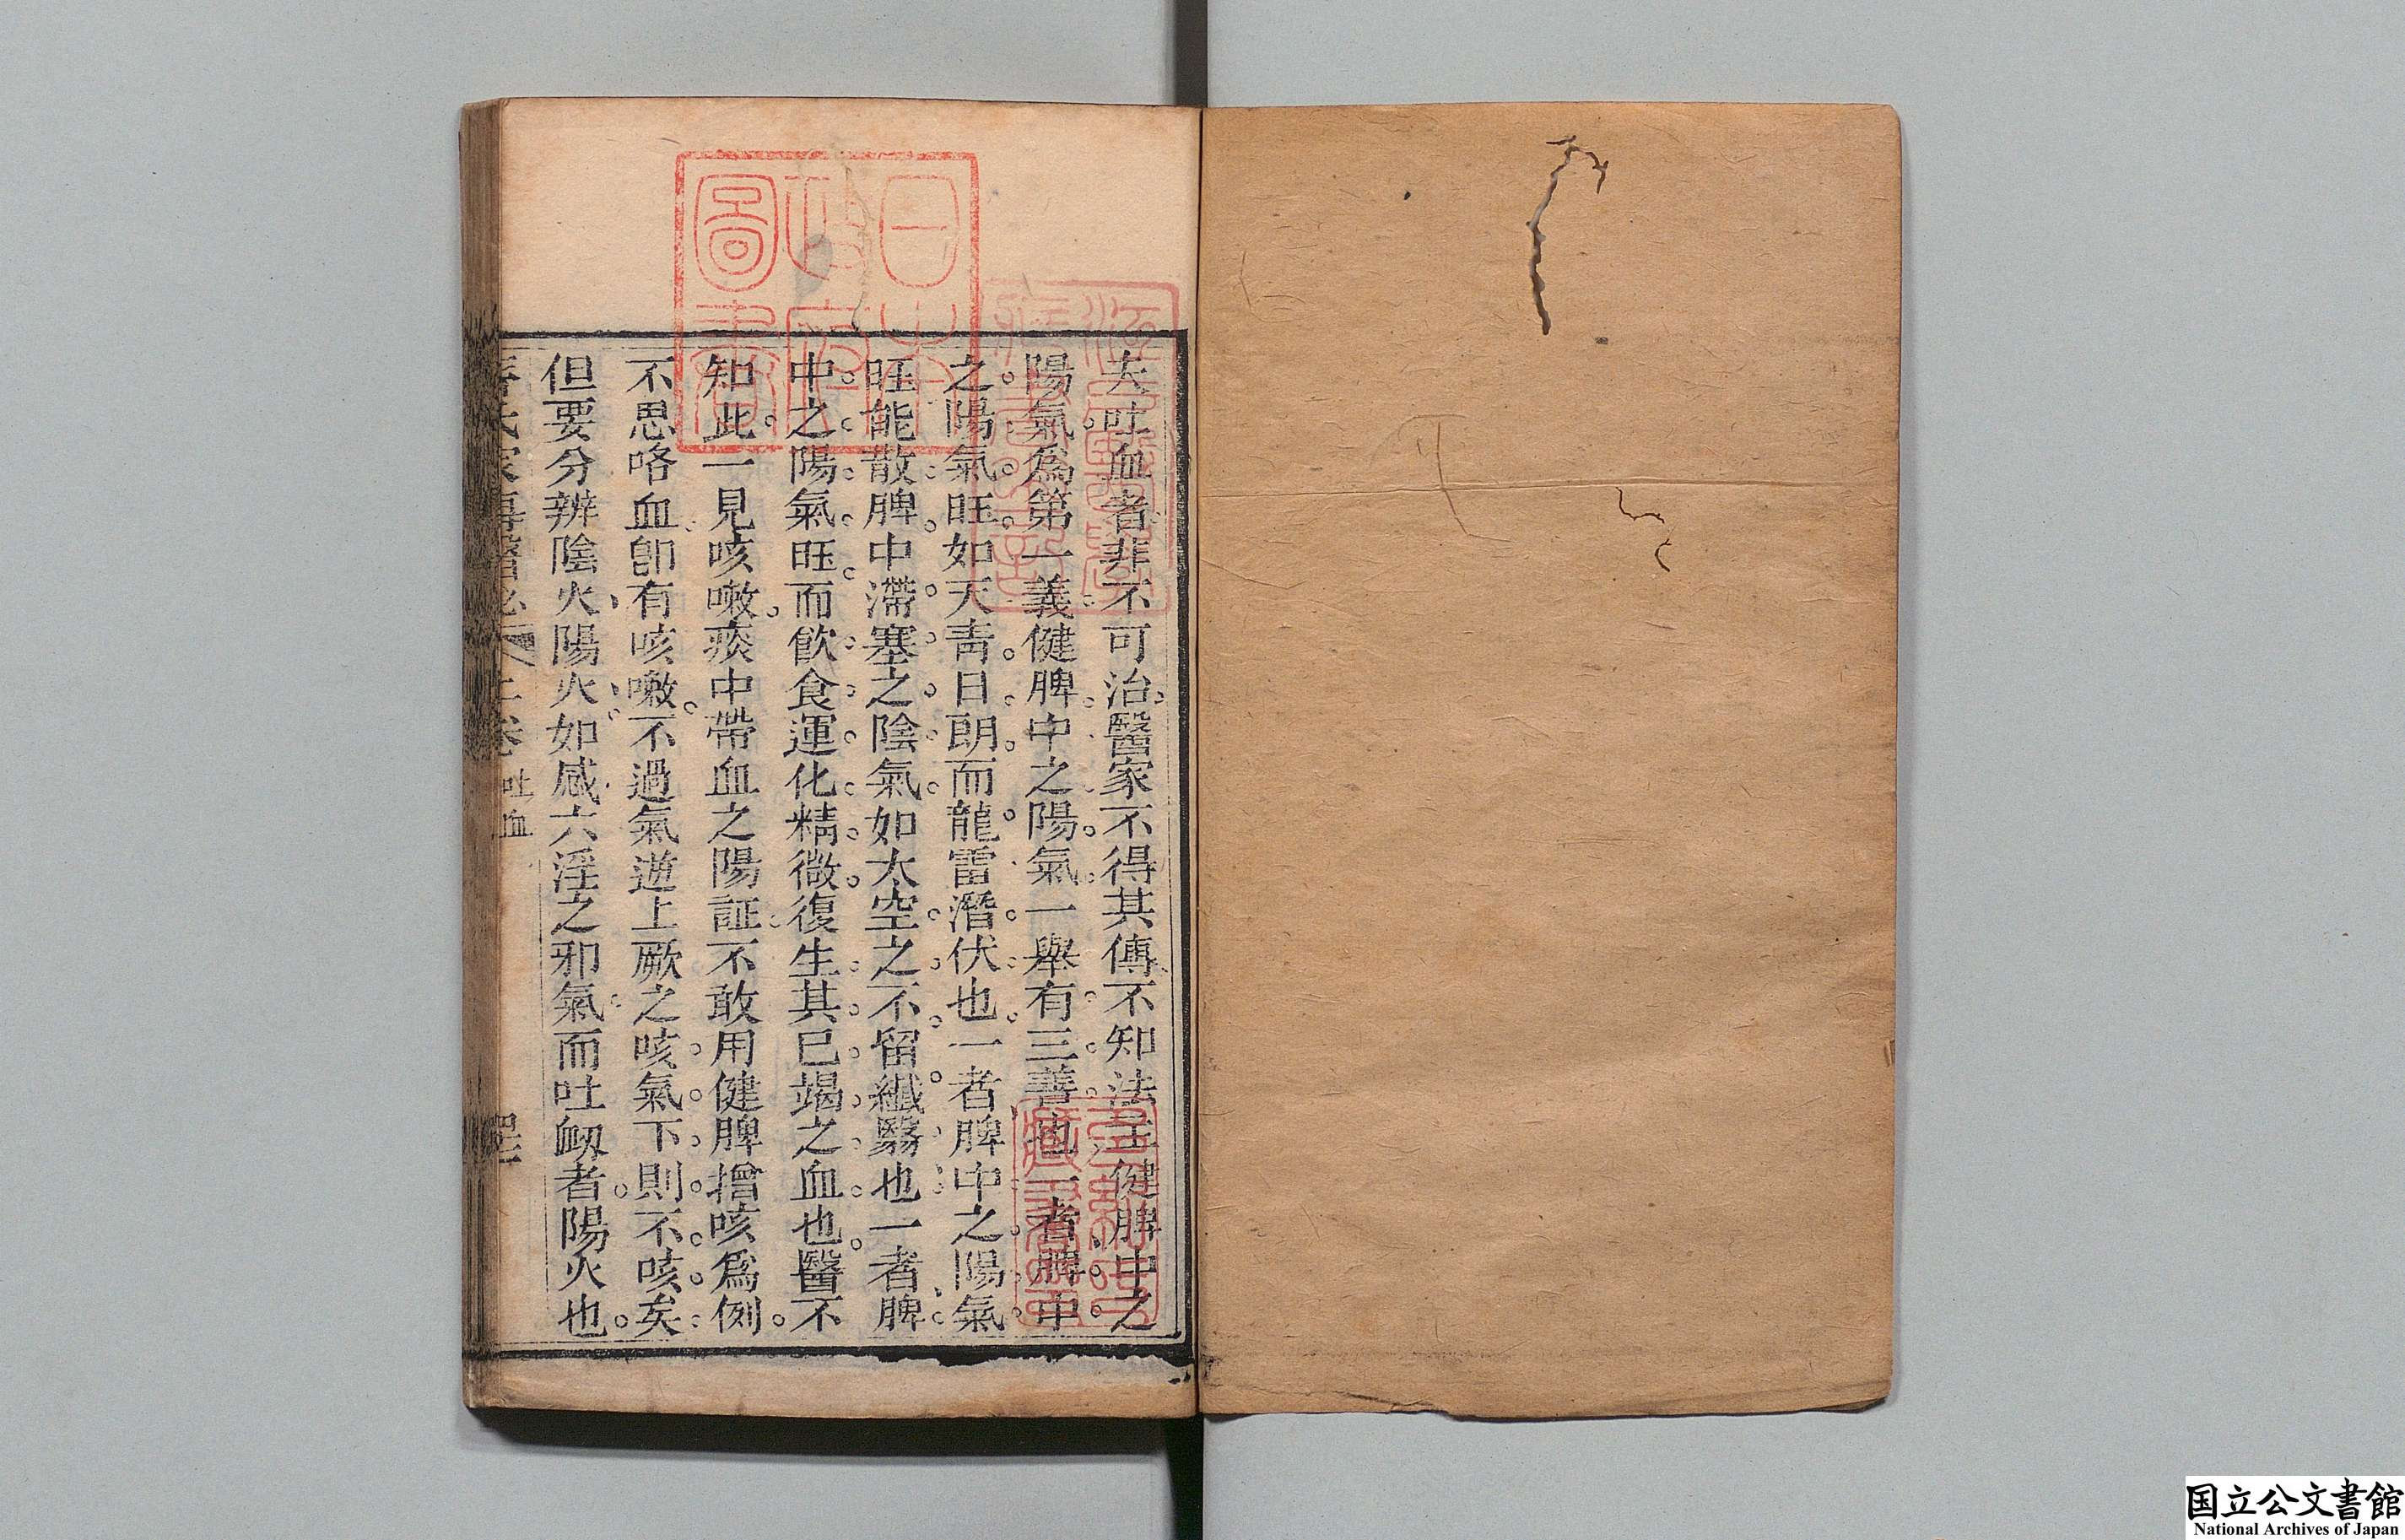 夫吐血者非不可治醫家不得其傳不知法主健脾中之
陽氣爲第一義健脾中之陽氣一舉有三善也一者脾中
之陽氣旺如天靑日朗而龍雷潛伏也一者脾中之陽氣
旺能散脾中滯塞之陰氣如太空之不留纖翳也一者脾
中之陽氣旺而飮食運化精微復生其已竭之血也醫不
知此一見咳嗽痰中帶血之陽証不敢用健脾增咳爲例
不思咯血卽有咳嗽不過氣逆上厥之咳氣下則不咳矣
但要分辨陰火陽火如感六淫之邪氣而吐衂者陽火也
上卷 吐血
日本政府圖書
国立公文書館
National Archives of Japan